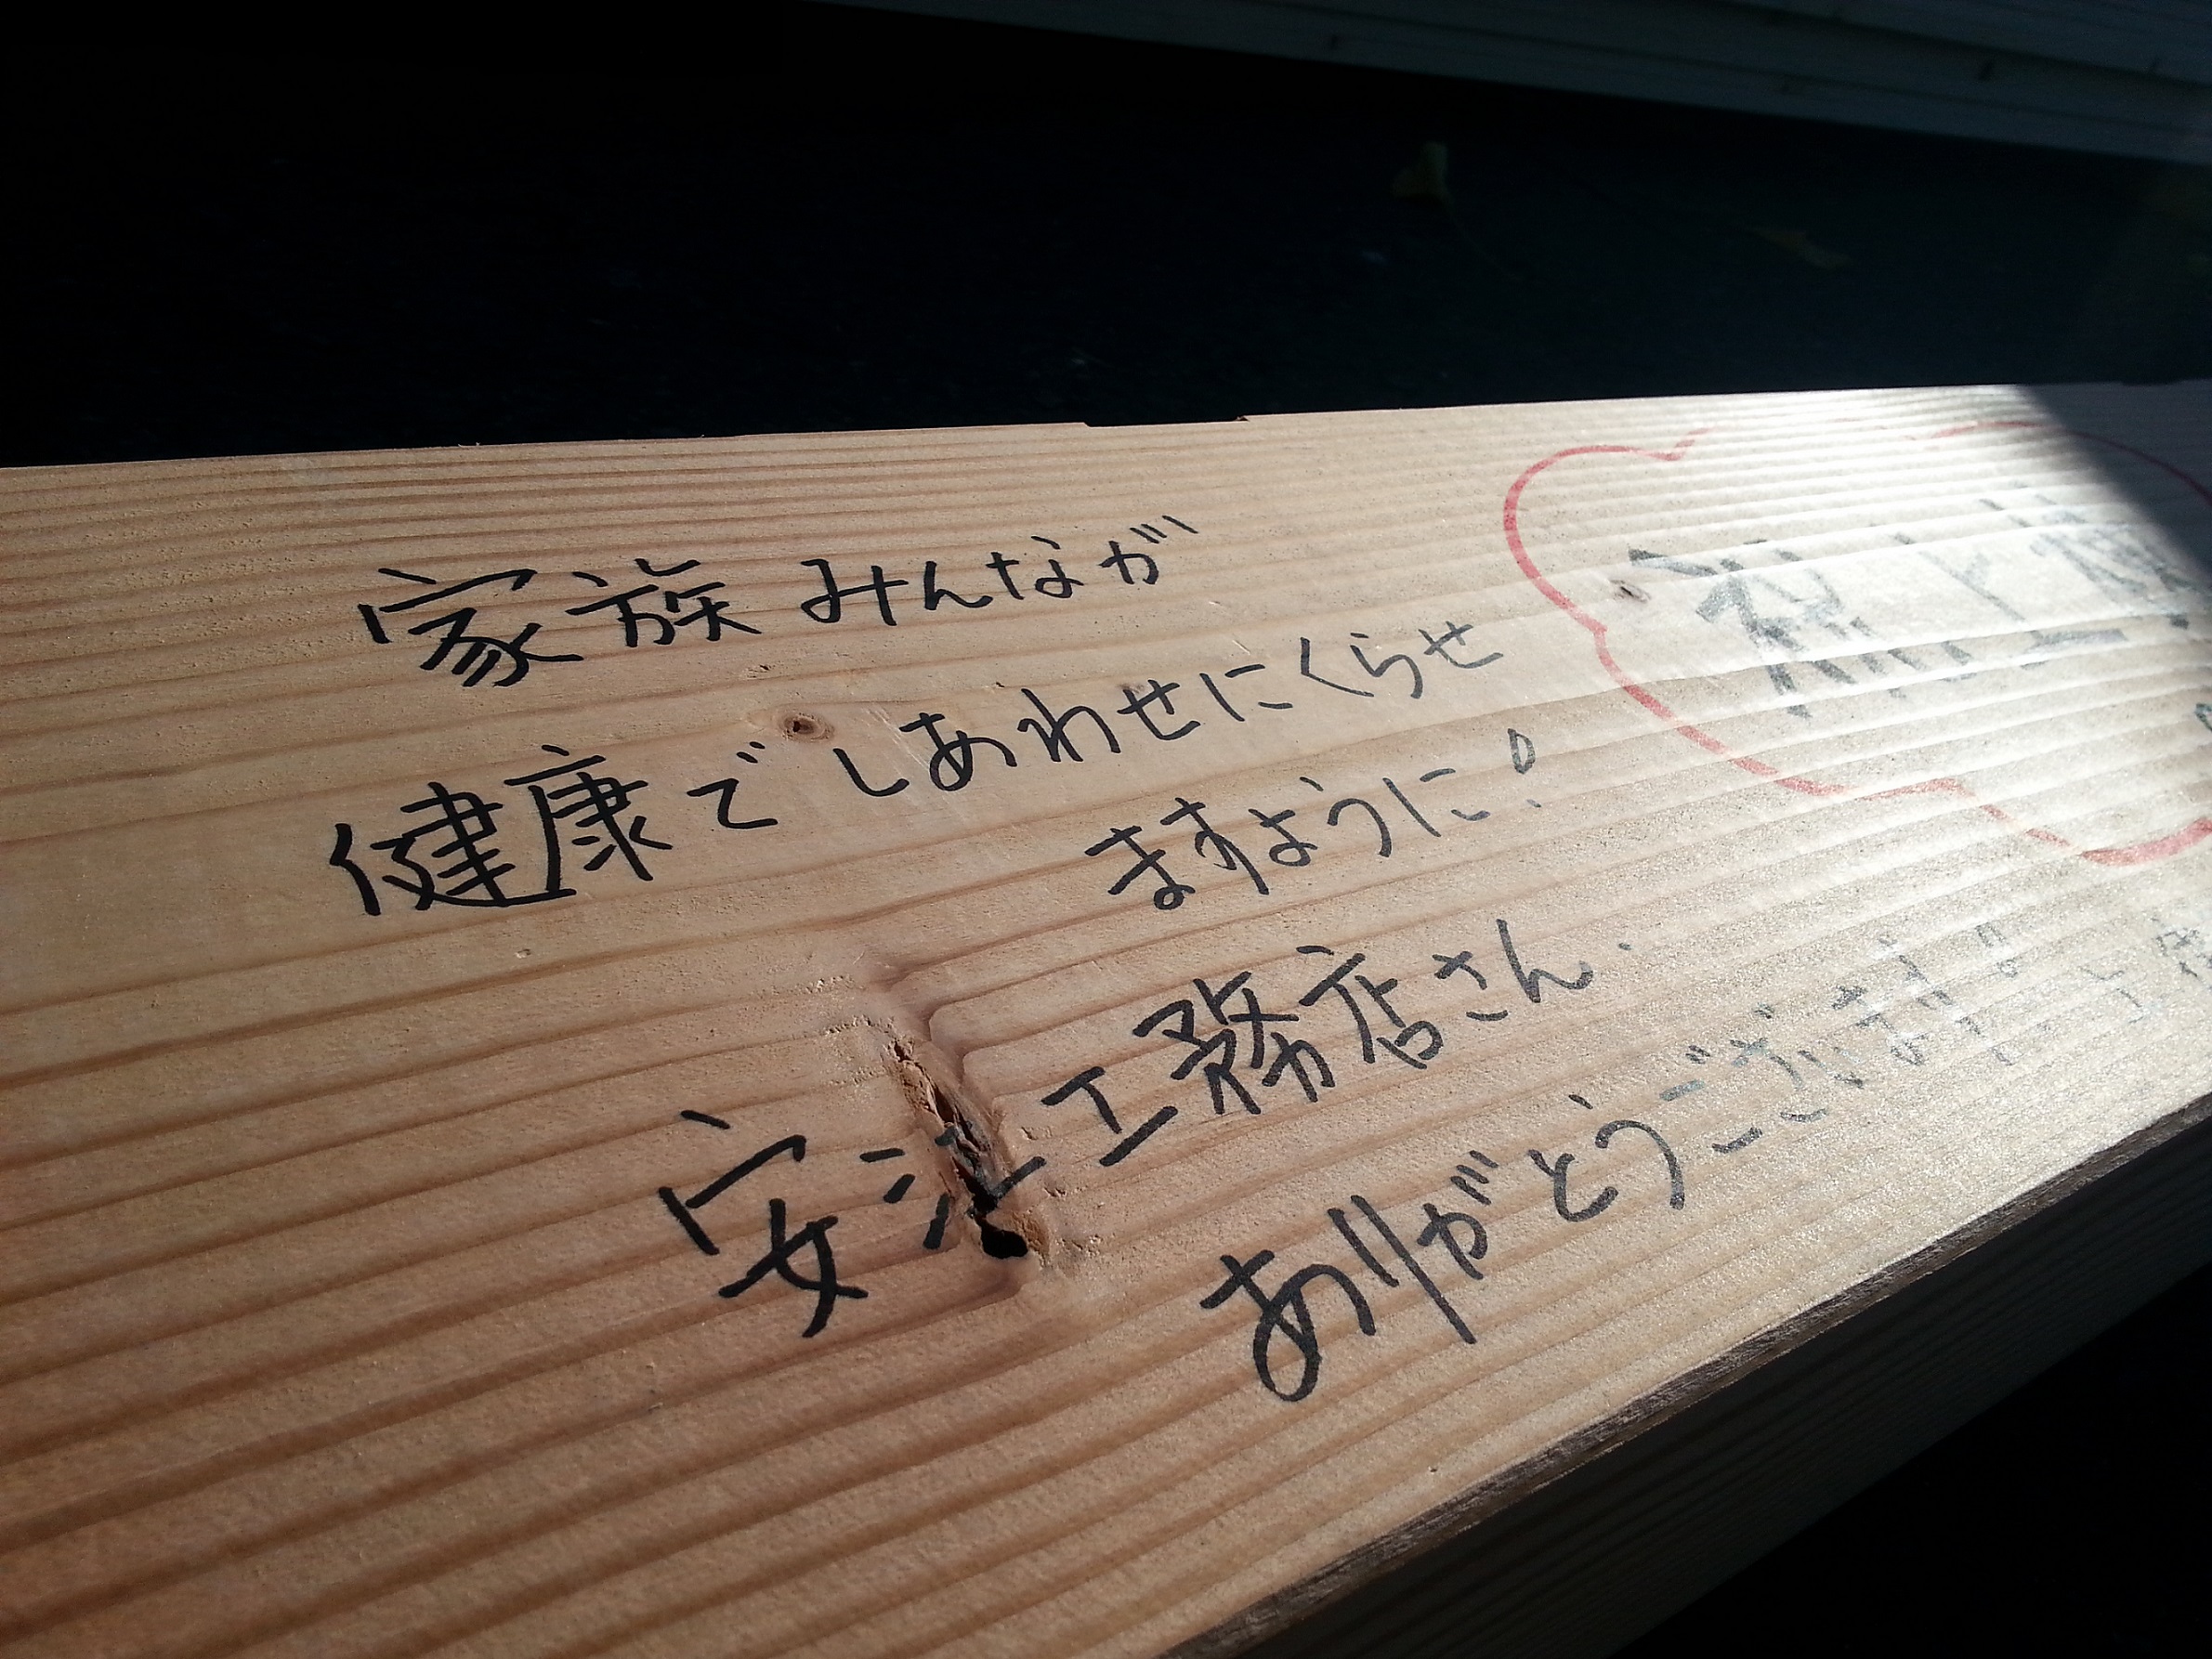 家族みんなが
健康でしあわせにくらせ
ますように!
安江工務店さん
ありがとうございます。
祝上棟